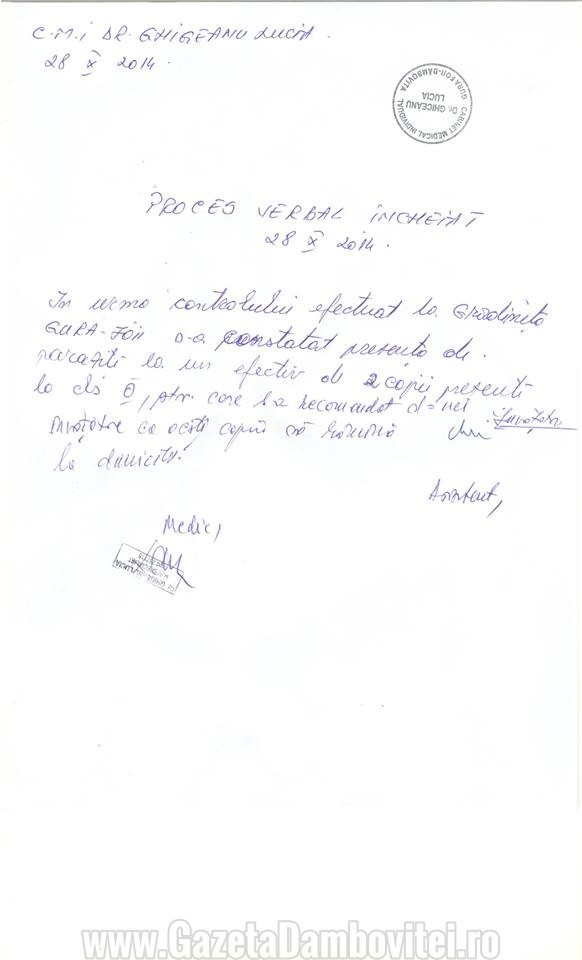 C.M.I DR. GHIGEANU LUCIA.
28 X 2014.
CABINET MEDICAL INDIVIDUAL
Dr. GHICEANU
LUCIA
GURA FOII-DAMBOVITA
PROCES VERBAL ÎNCHEIAT
28 X 2014.
În urma controlului efectuat la Grădinița
GURA-FOII s-a constatat prezența de
paraziți la un efectiv de 2 copii prezenți
la cls 0, ptr. care s-a recomandat d-nei
învățătoare ca acești copii să rămână
la domiciliu.
Asistent,
Medic,
www.GazetaDambovitei.ro